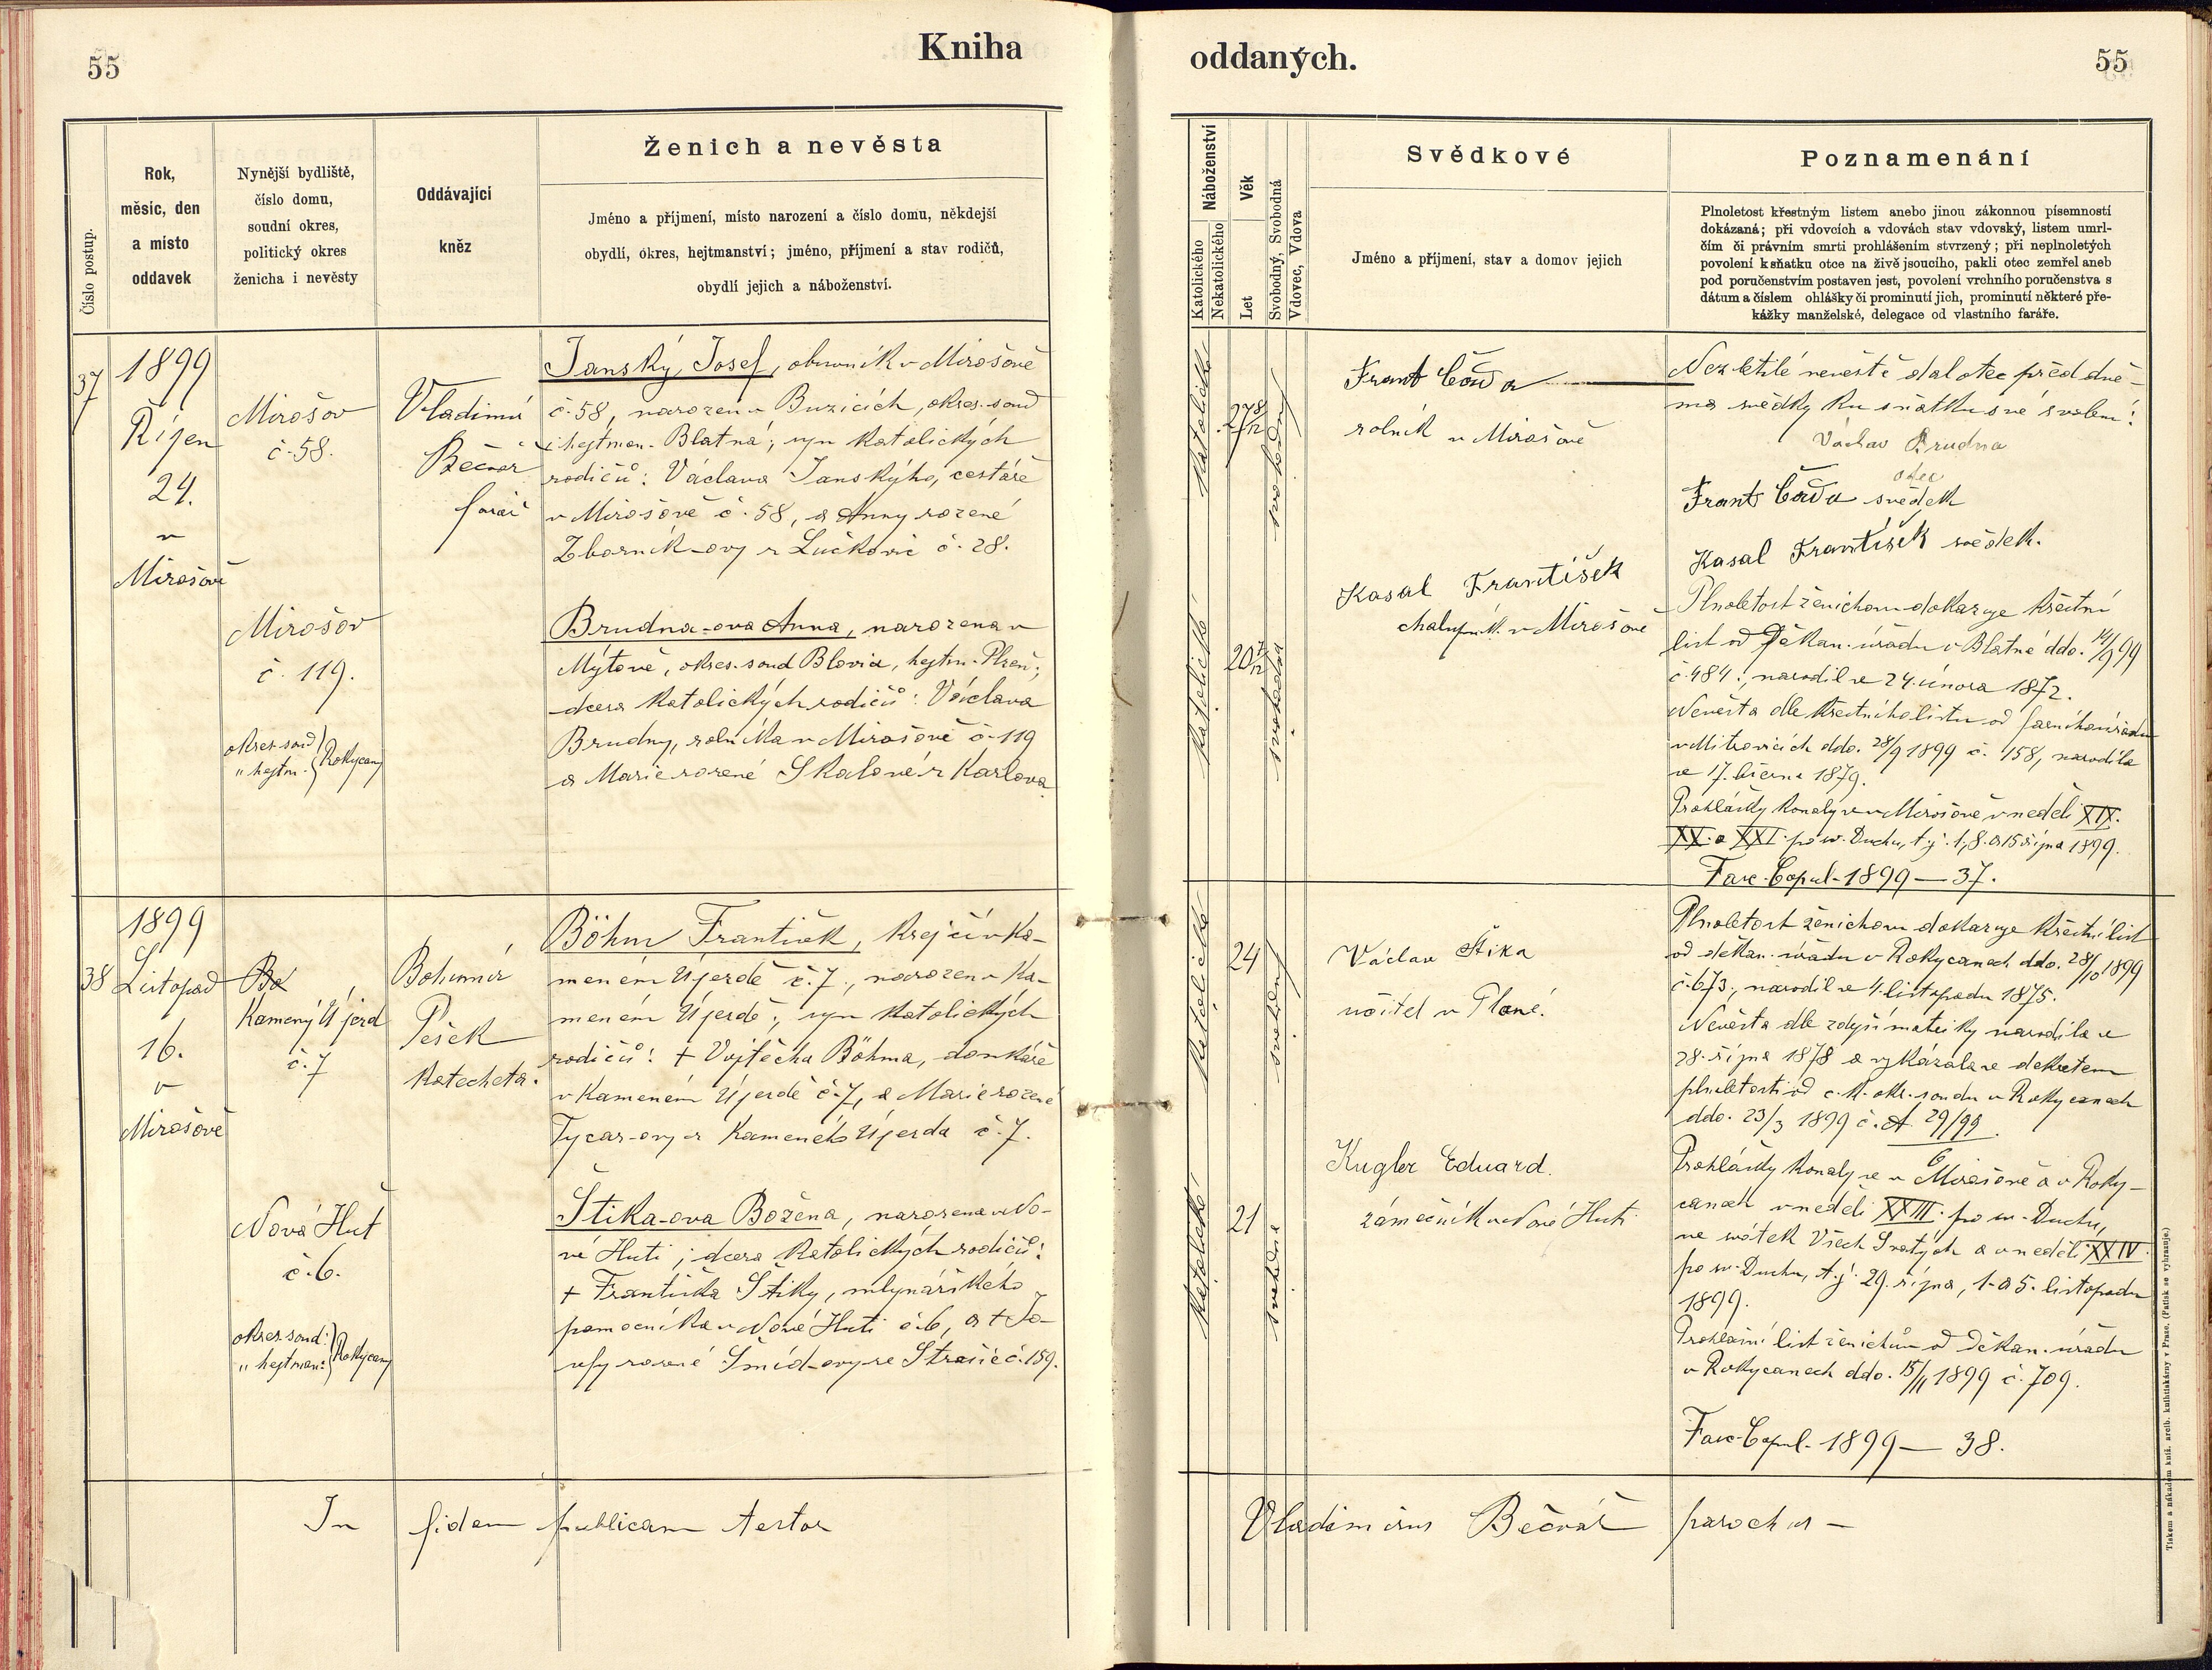 55
Kniha
oddaných.
55
Číslo postup.
Rok,
měsíc, den
a místo
oddavek
Nynější bydliště,
číslo domu,
soudní okres,
politický okres
ženicha i nevěsty
Oddávající
kněz
Ženich a nevěsta
Jméno a příjmení, místo narození a číslo domu, někdejší
obydlí, okres, hejtmanství; jméno, příjmení a stav rodičů,
obydlí jejich a náboženství.
Náboženství
Katolického
Nekatolického
Věk
Let
Svobodný, Svobodná
Vdovec, Vdova
Svědkové
Jméno a příjmení, stav a domov jejich
Poznamenání
Plnoletost křestným listem anebo jinou zákonnou písemností
dokázaná; při vdovcích a vdovách stav vdovský, listem umrl-
čím či právním smrti prohlášením stvrzený; při neplnoletých
povolení k sňatku otce na živě jsoucího, pakli otec zemřel aneb
pod poručenstvím postaven jest, povolení vrchního poručenstva s
dátum a číslem ohlášky či prominutí jich, prominutí některé pře-
kážky manželské, delegace od vlastního faráře.
37
1899
Říjen
24.
v
Mirošově
Mirošov
č. 58.
Vladimír
Bečvář
farář
Janský Josef, obuvník v Mirošově
č. 58, narozen v Buzicích, okres. soud
i hejtman. Blatná; syn katolických
rodičů: Václava Janskýho, cestáře
v Mirošově č. 58, a Anny rozené
Zborník-ovy z Lučkovic č. 28.
Mirošov
č. 119.
okres. soud
" hejtm. } Rokycany
Brudna-ova Anna, narozena v
Mýtově, okres. soud Blovic, hejtm. Plzeň;
dcera katolických rodičů: Václava
Brudny, rolníka v Mirošově č. 119
a Marie rozené Skalové z Karlova.
katolické
27 8/12
svobodný
Frant Čada
rolník v Mirošově
katolické
20 7/12
svobodná
Kasal František
chalupník v Mirošově
Nezletilé nevěstě dal otec před dvě-
ma svědky ku sňatku své svolení:
Václav Brudna
otec
Frant Čada svědek
Kasal František svědek.
Plnoletost ženichovu dokazuje křestní
list od Děkan. úřadu v Blatné ddo. 14/9 99
č. 484; narodil se 24. února 1872.
Nevěsta dle křestního listu od farního úřadu
v Mitrovicích ddo. 28/9 1899 č. 158, narodila
se 17. března 1879.
Prohlášky konaly se v Mirošově v neděli XIX.
XX. a XXI. po sv. Duchu, t. j. 1, 8. a 15 října 1899.
Fasc. Copul. 1899 — 37.
38
1899
Listopad
16.
v
Mirošově
Kamený Újezd
č. 7
Bohumír
Pešek
katecheta.
Böhm František, krejčí v Ka-
meném Újezdě č. 7, narozen v Ka-
meném Újezdě; syn katolických
rodičů: † Vojtěcha Böhma, domkáře
v Kameném Újezdě č. 7, a Marie rozené
Tycar-ovy z Kameného Újezda č. 7.
Nová Huť
č. 6.
okres. soud:
" hejtman: } Rokycany
Štika-ova Božena, narozena v No-
vé Huti; dcera katolických rodičů:
† Františka Štiky, mlynářského
pomocníka v Nové Huti č. 6, a † Jo-
sefy rozené Šmíd-ovy ze Strašic č. 159.
katolické
24
svobodný
Václav Štika
učitel v Plané.
katolické
21
svobodná
Kugler Eduard.
zámečník v Nové Huti
Plnoletost ženichovu dokazuje křestní list
od děkan. úřadu v Rokycanech ddo. 28/10 1899
č. 673; narodil se 4. listopadu 1875.
Nevěsta dle zdejší matriky narodila se
28. října 1878 a vykázala se dekretem
plnoletosti od c. k. okr. soudu v Rokycanech
ddo. 23/3 1899 č. A 29/99.
6
Prohlášky konaly se v Mirošově a v Roky-
canech v neděli XXIII. po sv. Duchu,
ve svátek Všech Svatých a v neděli XXIV.
po sv. Duchu, t. j. 29. října, 1. a 5. listopadu
1899.
Prohlašní list ženichův od děkan. úřadu
v Rokycanech ddo. 15/11 1899 č. 709.
Fasc. Copul. 1899 — 38.
In fidem publicam testor
Vladimirus Bečvář parochus —
Tiskem a nákladem kníž. arcib. knihtiskárny v Praze. (Patisk se vyhrazuje.)